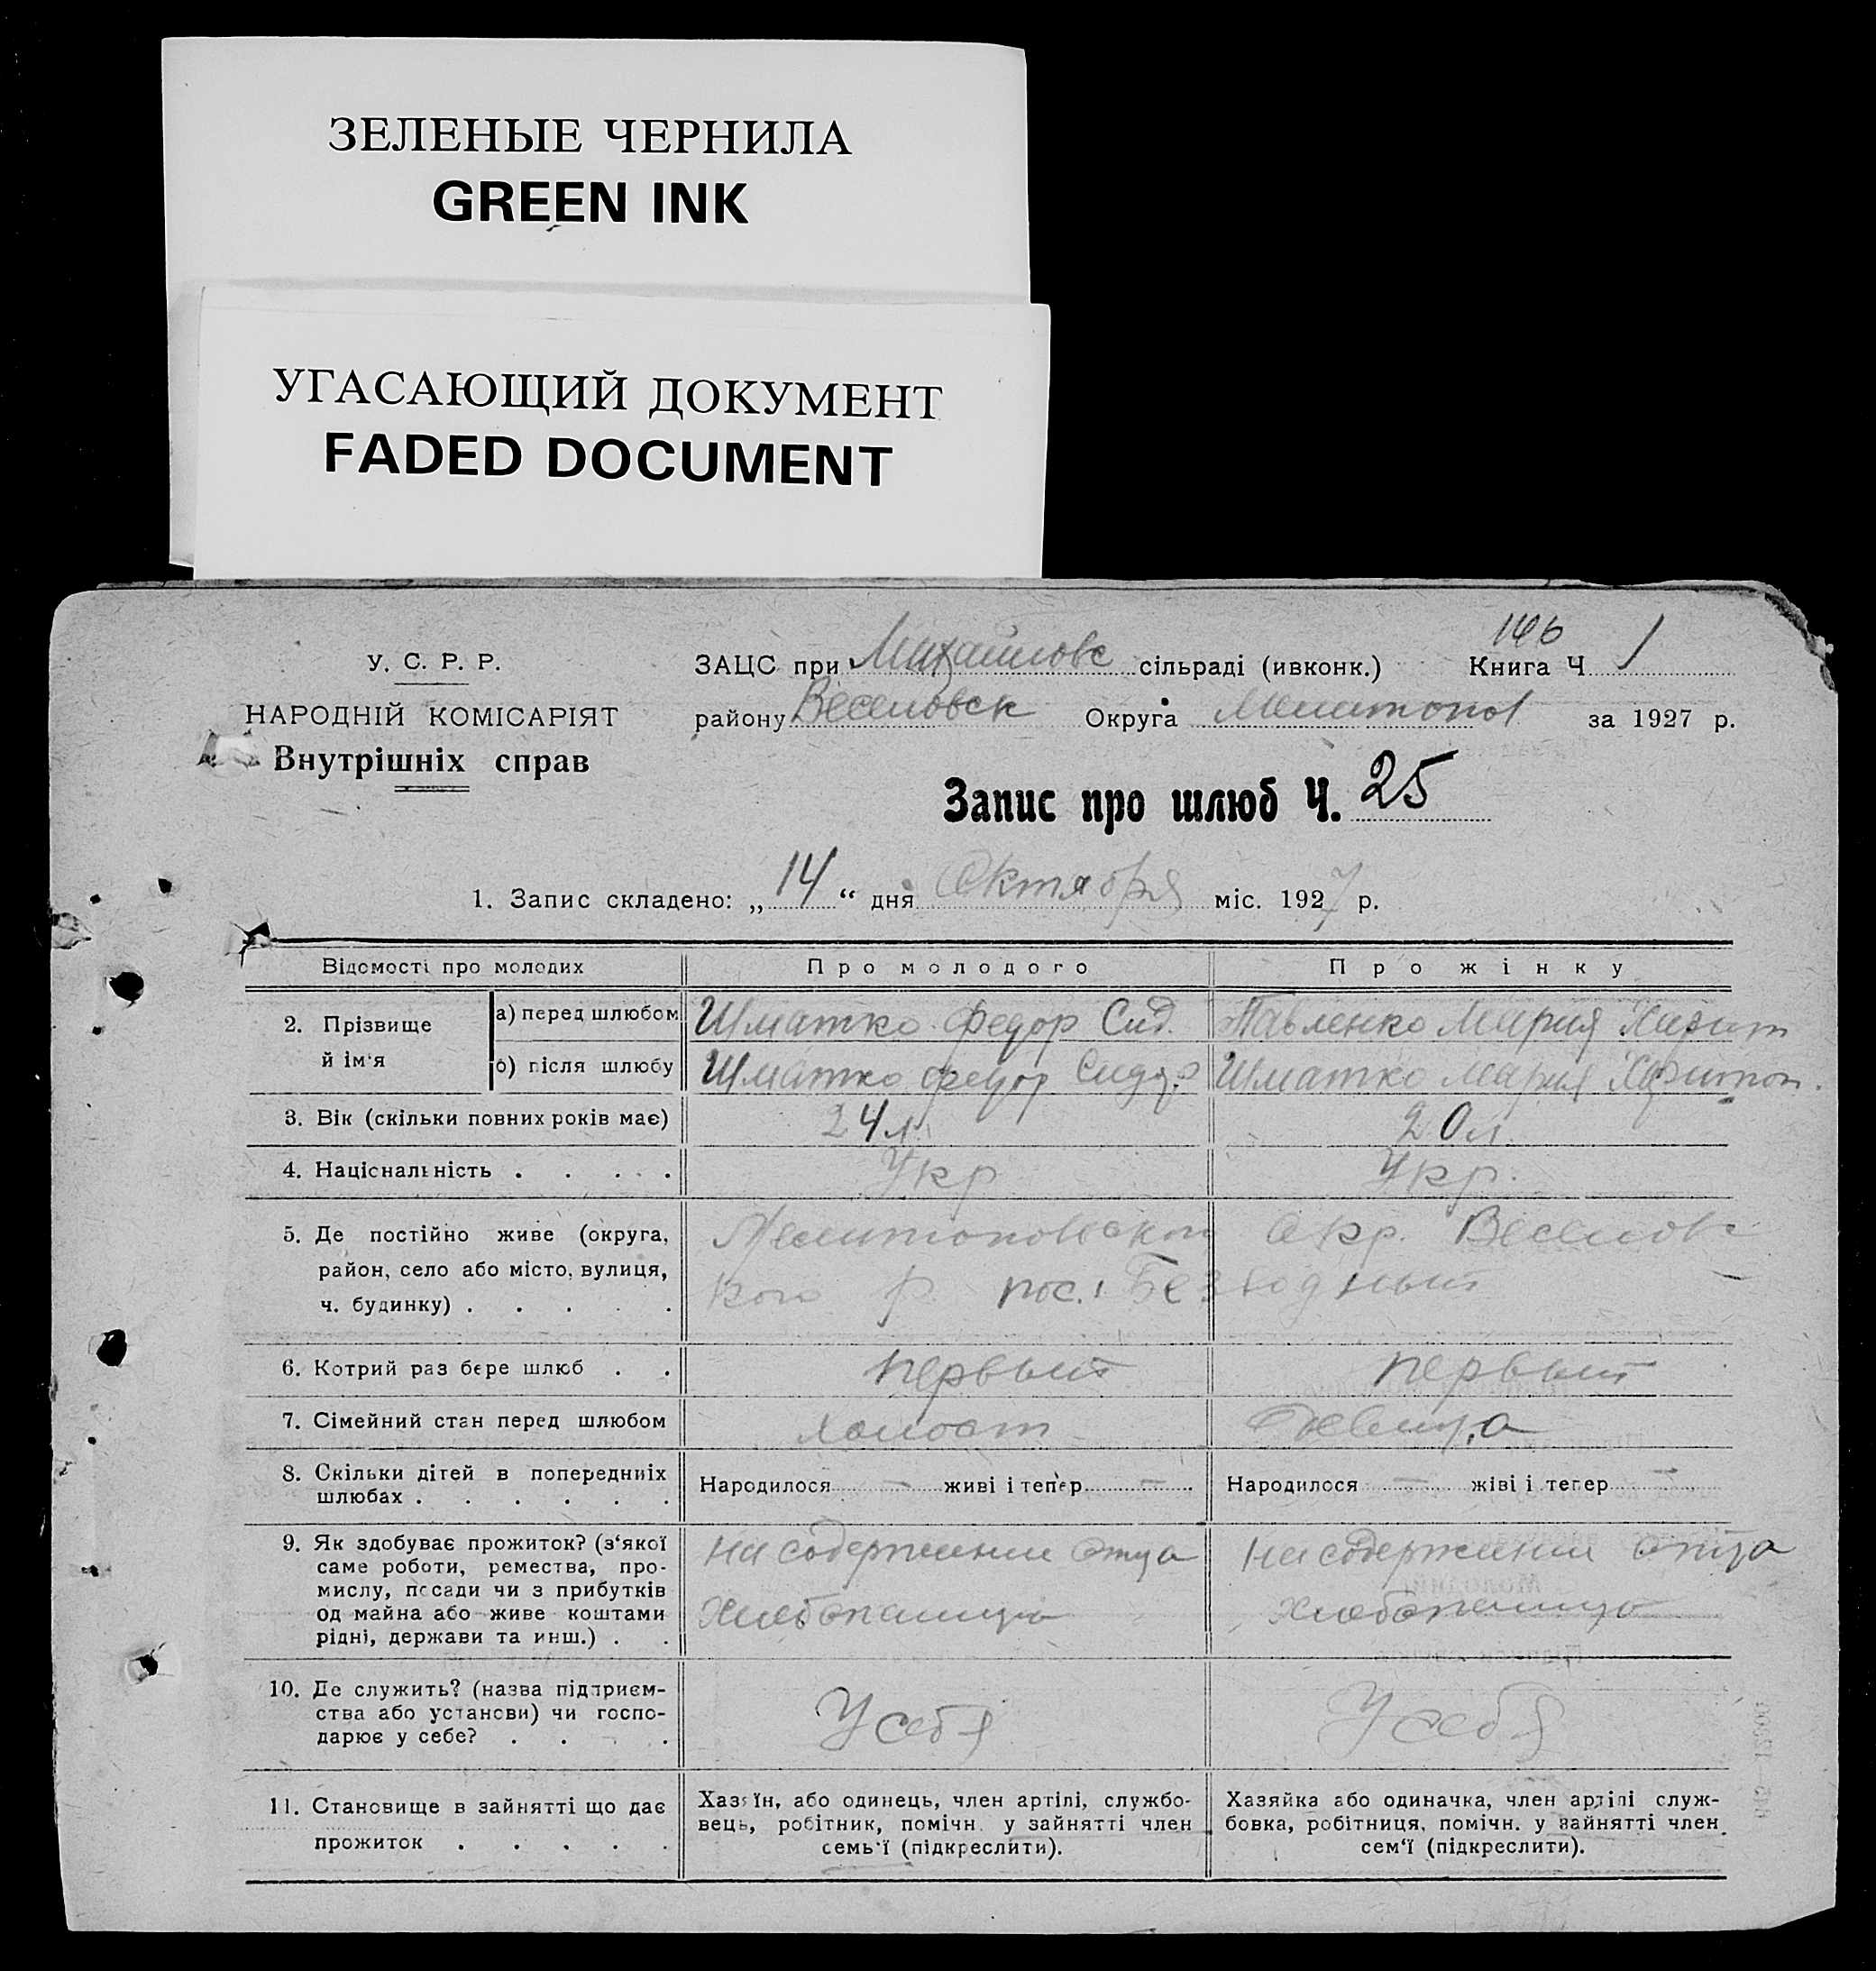 ЗЕЛЕНЫЕ ЧЕРНИЛА
GREEN INK
УГАСАЮЩИЙ ДОКУМЕНТ
FADED DOCUMENT
У. С. Р. Р.
НАРОДНІЙ КОМІСАРІЯТ
Внутрішніх справ
146
ЗАЦС при Михайловс сільраді (ивконк.) Книга Ч 1
району Веселовск Округа Мелитопол за 1927 р.
Запис про шлюб Ч. 25
1. Запис складено: „ 14 “ дня Октября міс. 1927 р.
Відомості про молодих Про молодого Про жінку
2. Прізвище й ім‘я
а) перед шлюбом Шматко Федор Сид. Павленко Мария Харит
б) після шлюбу Шматко Федор Сидор Шматко Мария Харитон.
3. Вік (скільки повних років має) 24 л. 20 л.
4. Національність . . . . . Укр Укр.
5. Де постійно живе (округа, Мелитопольской Окр. Веселовс
район, село або місто, вулиця, кого р. пос. Безводный
ч. будинку) . . . . .
6. Котрий раз бере шлюб . . первый первый
7. Сімейний стан перед шлюбом холост девица
8. Скільки дітей в попередніх
шлюбах . . . . . .
Народилося — живі і тепер — Народилося — жіві і тепер —
9. Як здобуває прожиток? (з‘якої на содержании отца на содержании отца
саме роботи, ремества, про-
мислу, посади чи з прибутків
од майна або живе коштами
рідні, держави та инш.) . .
10. Де служить? (назва підприєм-
ства або установи) чи госпо- У себя У себя
дарює у себе? . . . .
11. Становище в зайнятті що дає
прожиток . . . . .
Хазяїн, або одинець, член артілі, службо-
вець, робітник, помічн. у зайнятті член
семь‘ї (підкреслити).
Хазяйка або одиначка, член артілі служ-
бовка, робітниця, помічн. у зайнятті член
сем‘ї (підкреслити).